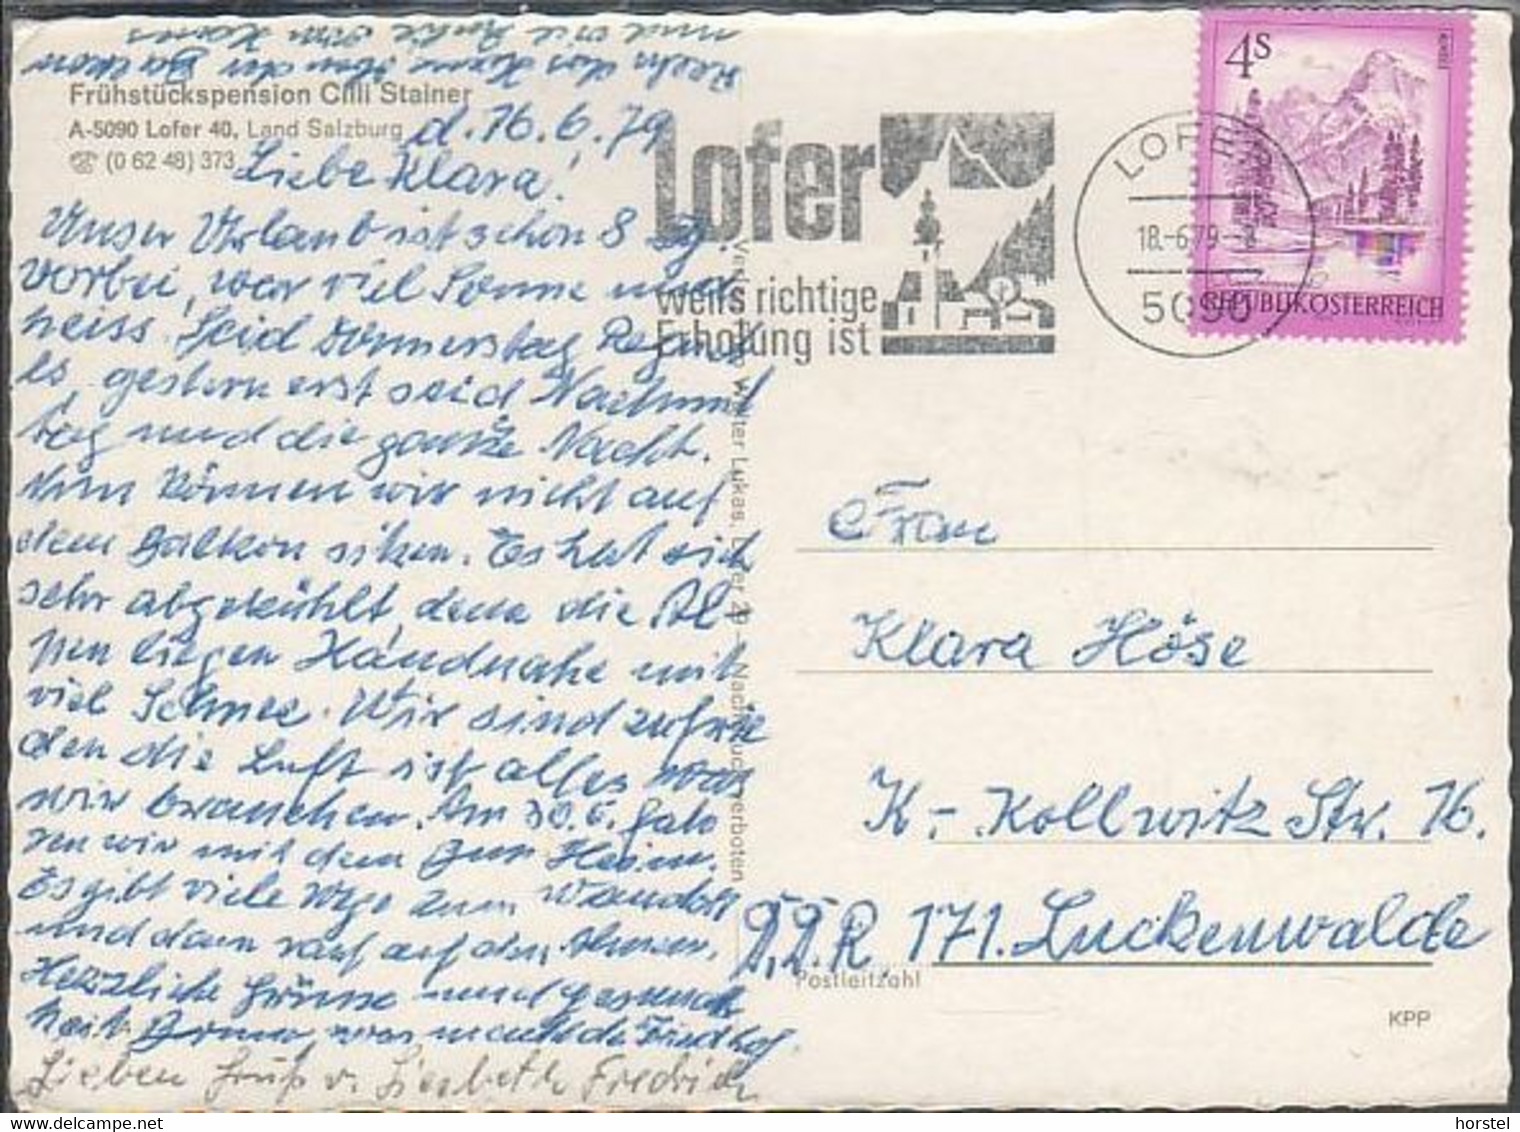 Frühstückspension Cilli Stainer
A-5090 Lofer 40, Land Salzburg
☏ (0 62 48) 373
d. 16.6.79
Liebe Klara!
Unser Urlaub ist schon 8 Tg.
vorbei, war viel Sonne und
heiss. Seid Donnerstag Regnet
es, gestern erst seid Nachmit
tag und die ganze Nacht.
Nun können wir nicht auf
dem Balkon sitzen. Es hat sich
sehr abgekühlt, denn die Al-
pen liegen Handnahe mit
viel Schnee. Wir sind zufrie
den die Luft ist alles was
wir brauchen. Am 30.6. fah
ren wir mit dem Heim.
Es gibt viele Wege zum Wandern
und dann rauf auf den
Herzliche Grüsse und gesund
heit
Lieben Gruß v. Liesbeth Friedrich
und viel Ruhe
4S
REPUBLIK ÖSTERREICH
LOFER
18.-6.79-
5090
Lofer
weils richtige
Erholung ist
Walter Lukas, Lofer 29 - Nachdruck verboten
Frau
Klara Höse
K.-Kollwitz Str. 16.
D.D.R 171. Luckenwalde
Postleitzahl
KPP
horstel